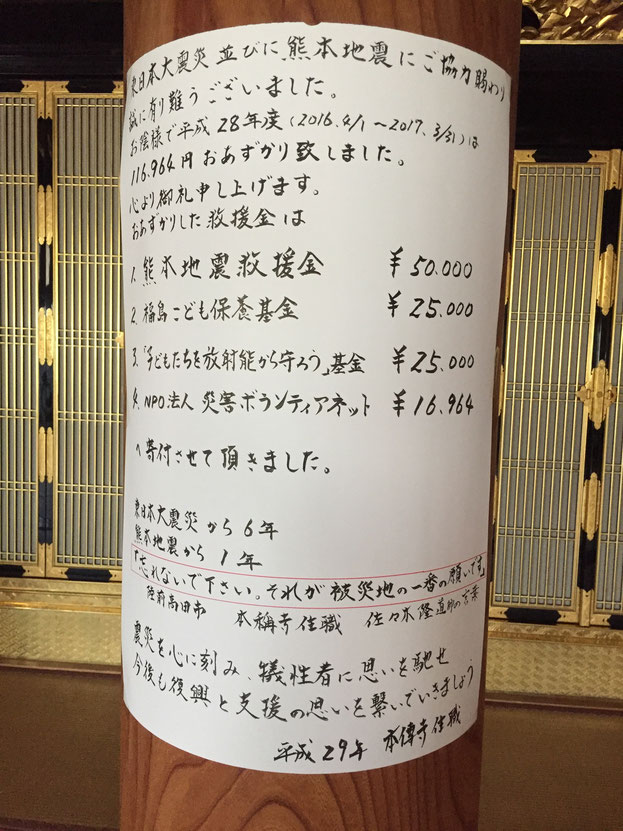 東日本大震災並びに熊本地震にご協力賜わり
誠に有り難うございました。
お陰様で平成28年度(2016.4/1〜2017.3/31)は
116.964円おあずかり致しました。
心より御礼申し上げます。
おあずかりした救援金は
1.熊本地震救援金 ¥50.000
2.福島こども保養基金 ¥25.000
3.「子どもたちを放射能から守ろう」基金 ¥25.000
4.NPO法人 災害ボランティアネット ¥16.964
へ寄付させて頂きました。
東日本大震災から6年
熊本地震から1年
「忘れないで下さい。それが被災地の一番の願いです」
陸前高田市 本稱寺住職 佐々木隆道師の言葉
震災を心に刻み、犠牲者に思いを馳せ
今後も復興と支援の思いを繋いでいきましょう
平成29年 本傳寺住職